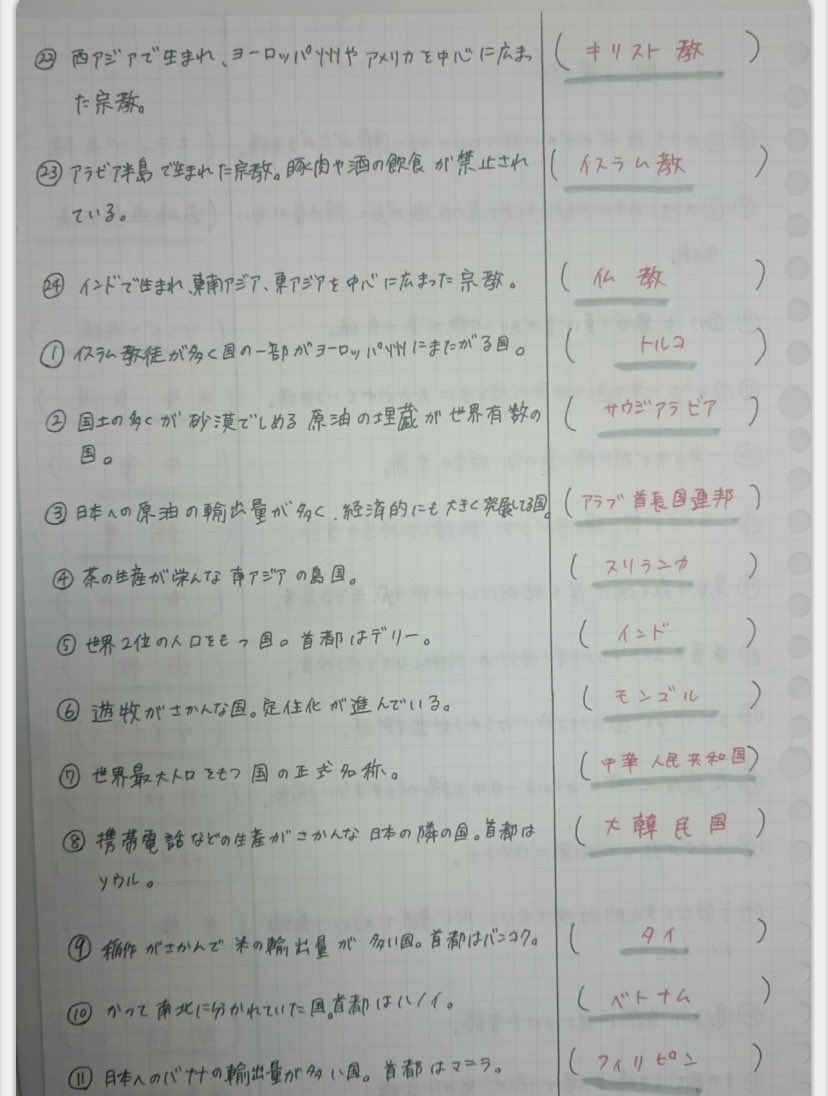 ㉒ 西アジアで生まれ、ヨーロッパ州やアメリカを中心に広ま (キリスト教)
た宗教。
㉓ アラビア半島で生まれた宗教。豚肉や酒の飲食が禁止され (イスラム教)
ている。
㉔ インドで生まれ、東南アジア、東アジアを中心に広まった宗教。 (仏教)
① イスラム教徒が多く国の一部がヨーロッパ州にまたがる国。 (トルコ)
② 国土の多くが砂漠でしめる原油の埋蔵が世界有数の (サウジアラビア)
国。
③ 日本への原油の輸出量が多く、経済的にも大きく発展してる国。 (アラブ首長国連邦)
④ 茶の生産が栄んな南アジアの島国。 (スリランカ)
⑤ 世界2位の人口をもつ国。首都はデリー。 (インド)
⑥ 遊牧がさかんな国。定住化が進んでいる。 (モンゴル)
⑦ 世界最大人口をもつ国の正式名称。 (中華人民共和国)
⑧ 携帯電話などの生産がさかんな日本の隣の国。首都は (大韓民国)
ソウル。
⑨ 稲作がさかんで米の輸出量が多い国。首都はバンコク。 (タイ)
⑩ かつて南北に分かれていた国。首都はハノイ。 (ベトナム)
⑪ 日本へのバナナの輸出量が多い国。首都はマニラ。 (フィリピン)